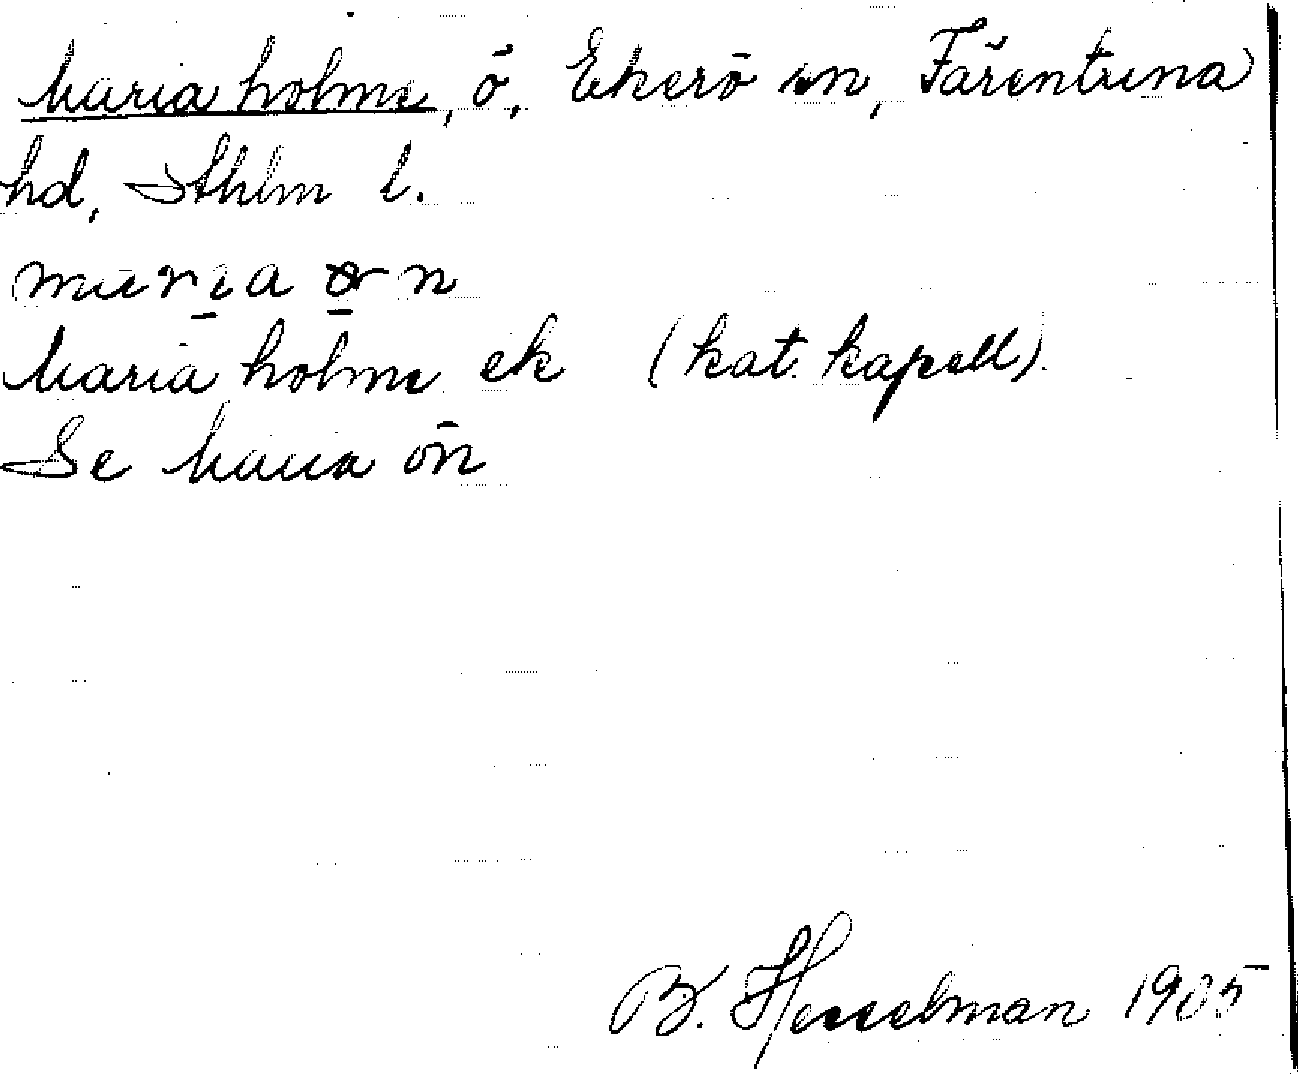 Maria holme, ö, Ekerö sn, Färentuna
hd, Sthlm l.
Maria holme ek (kat. kapell)
Se Maria ön
B. Hesselman 1905